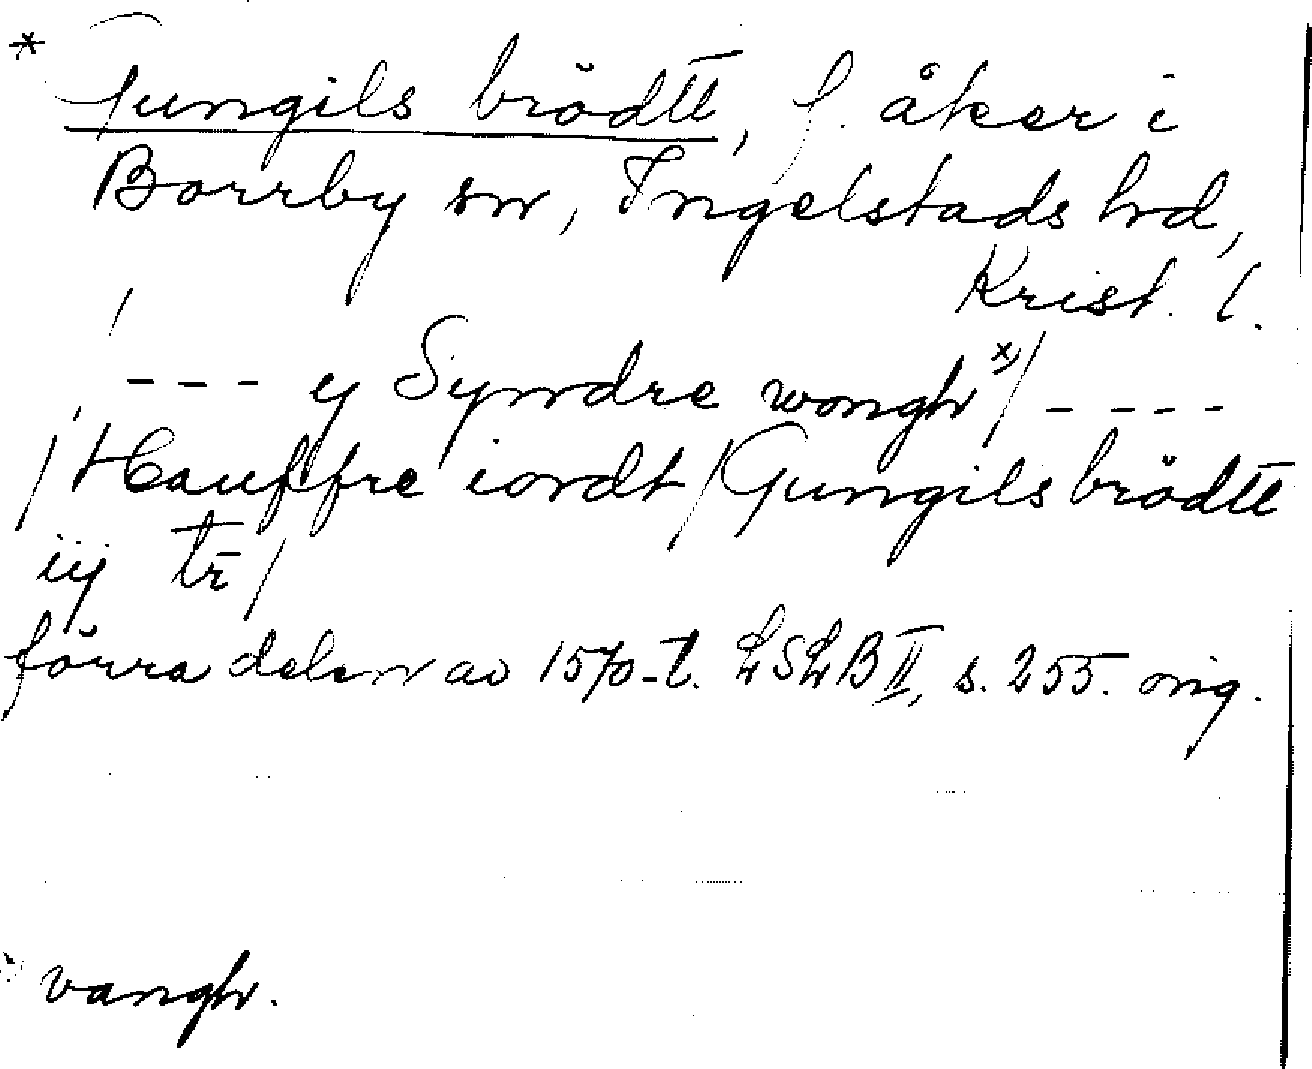 * Gungils brödtt, f. åker i
Borrby sn, Ingelstads hrd,
Krist. l.
/
- - - ij Syndre wongh x)/ - - - -
/Hauffre iordt/Gungils brödtt
iij tr̄/
förra delen av 1570-t. LSLB II, s. 255. orig.
vangh.